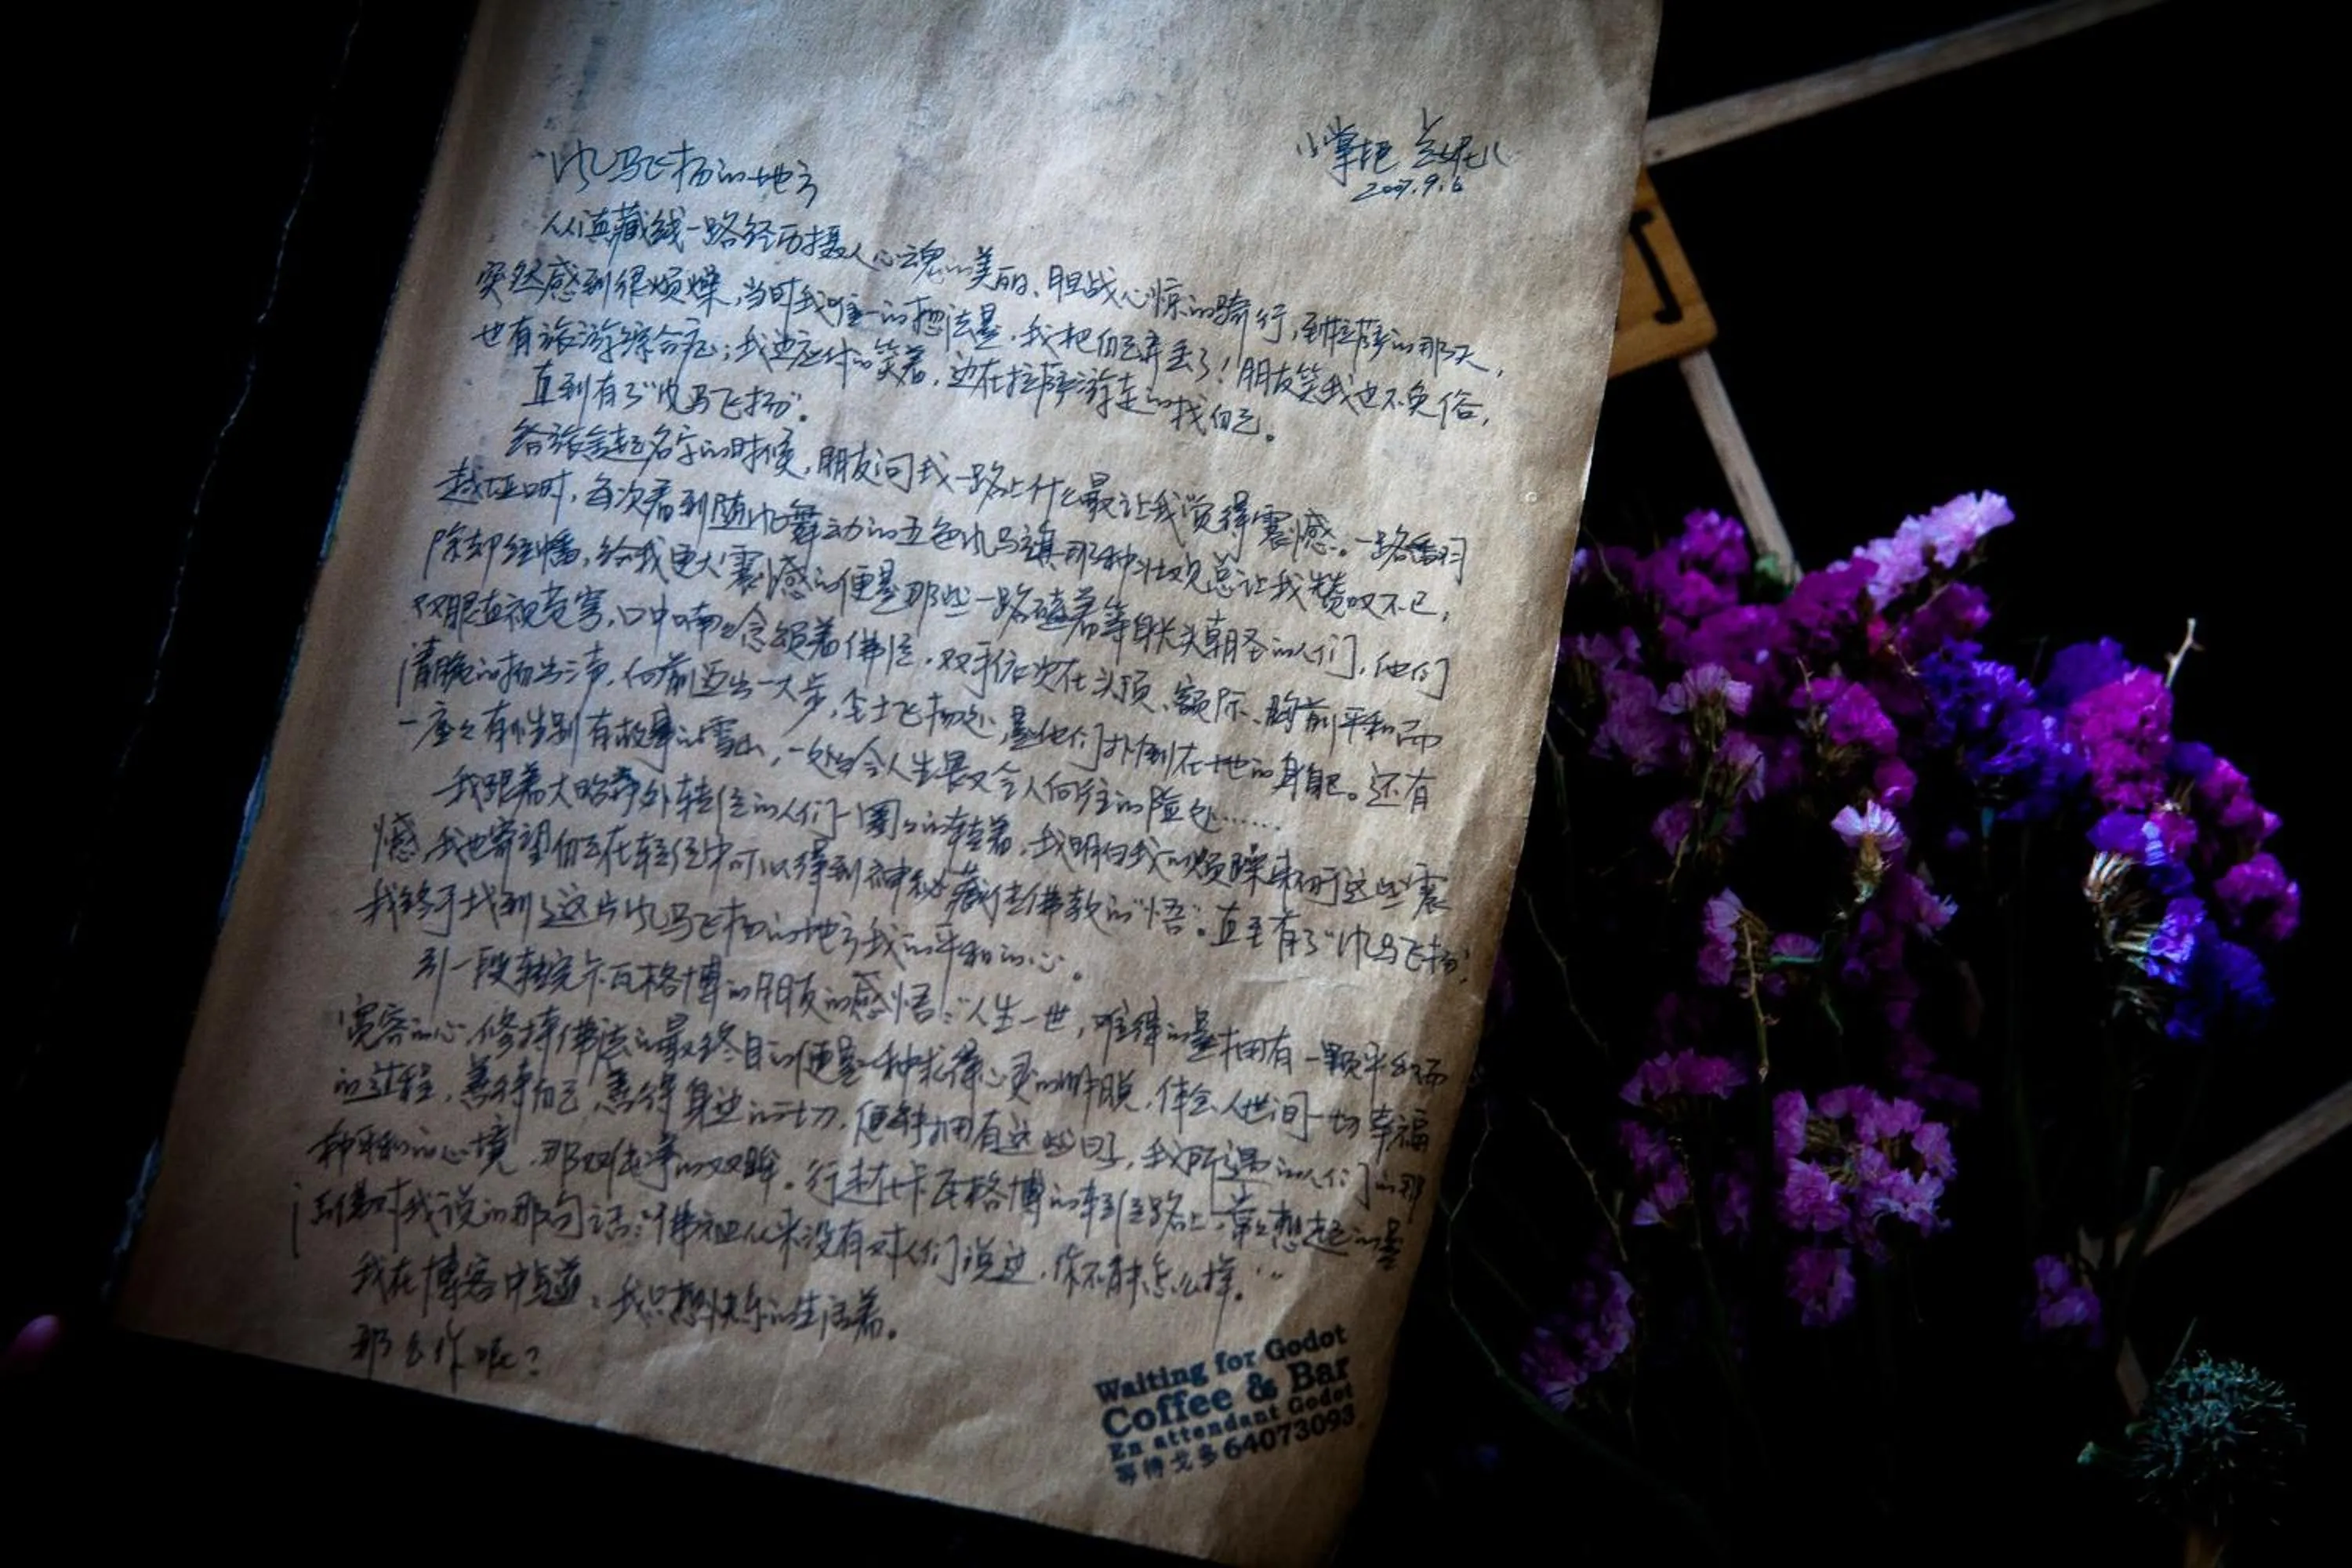 风马飞扬的地方
小掌柜
2007.9.6
从滇藏线一路经历摄人心魂的美丽、胆战心惊的骑行,到拉萨的那天,
突然感到很烦燥,当时我唯一的想法是,我把自己弄丢了!朋友笑我也不免俗,
也有旅游综合症;我边应付的笑着,边在拉萨游走的找自己。
直到有了“风马飞扬”。
给旅舍起名字的时候,朋友问我一路上什么最让我觉得震憾。一路翻
越垭口时,每次看到随风舞动的五色风马旗那种壮观总让我赞叹不已;
除却经幡,给我更大震憾的便是那些一路磕着等身长头朝圣的人们,他们
双眼直视苍穹,口中喃喃念颂着佛经,双手依次在头顶、额际、胸前平和而
清脆的拍出三声,向前迈出一大步,尘土飞扬处,是他们扑倒在地的身躯。还有
一座座有性别有故事的雪山,一处处令人生畏又令人向往的险处……
我跟着大昭寺外转经的人们一圈圈的转着,我明白我的烦躁来自于这些震
憾,我也寄望自己在转经中可以得到神秘藏传佛教的“悟”。直至有了“风马飞扬”,
我终于找到了这片风马飞扬的地方我的平和的心。
引一段转完卡瓦格博的朋友的感悟:“人生一世,难得的是拥有一颗平和而
宽容的心,修持佛法的最终目的便是一种求得心灵的解脱,体会人世间一切幸福
的过程,善待自己,善待身边的一切,便能拥有这些日子,我所遇的人们的那
种平和的心境,那双纯净的双眸。行走在卡瓦格博的转经路上,常常想起的是
活佛对我说的那句话:‘佛祖从来没有对人们说过,你不能怎么样。’”
我在博客中写道:我只想快乐的生活着。
那么你呢?
Waiting for Godot
Coffee & Bar
En attendant Godot
等待戈多 64073093